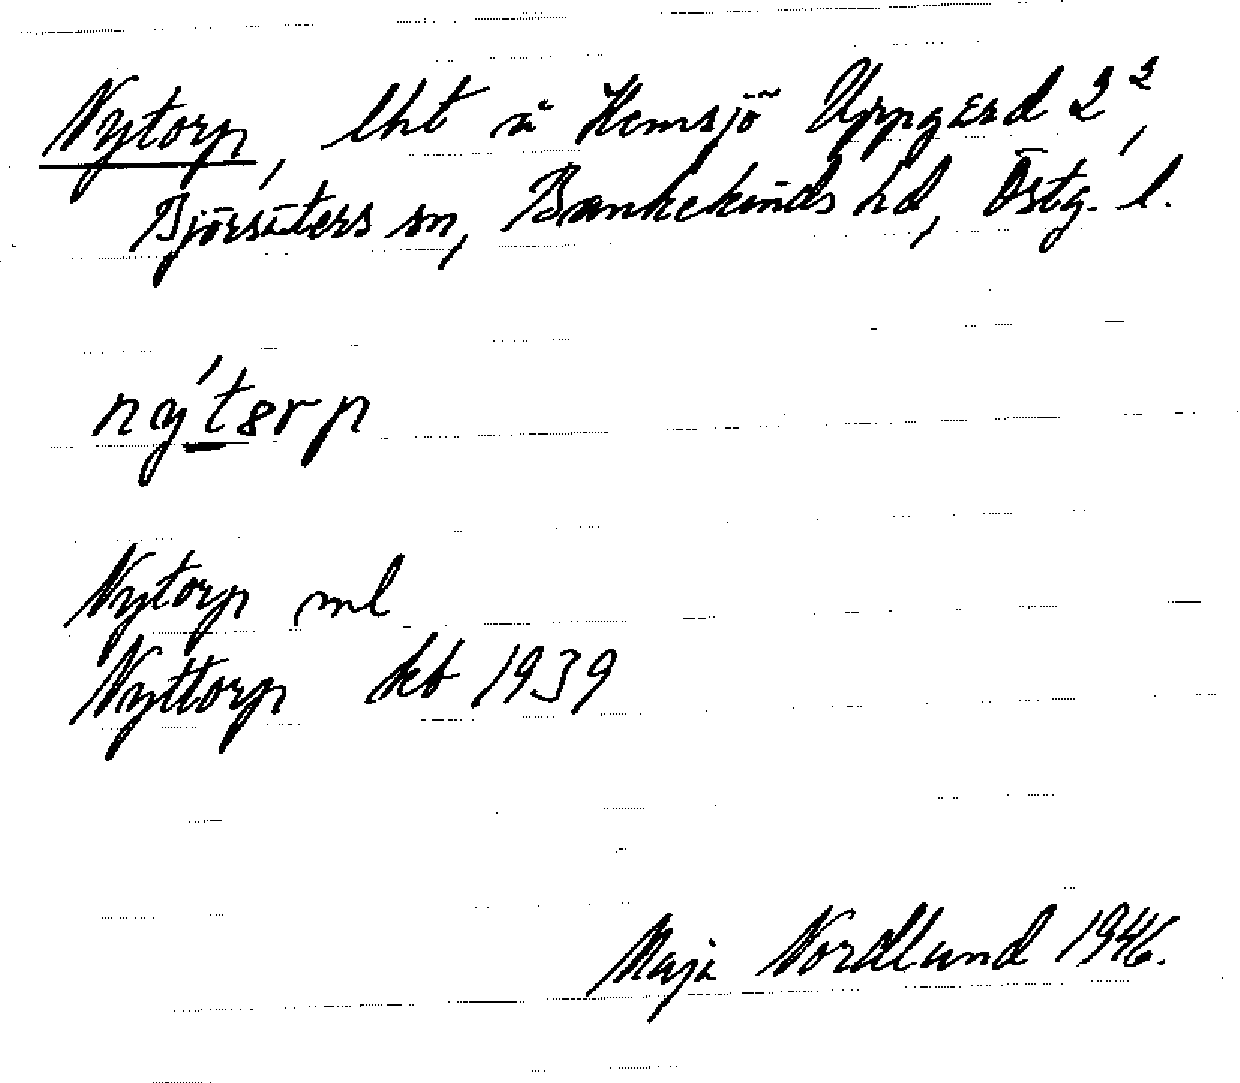 Nytorp, lht å Hemsjö Uppgård 2²,
Björsäters sn, Bankekinds hd, Östg. l.
ny´tərp
Nytorp ml
Nyttorp kb 1939
Maja Nordlund 1946.